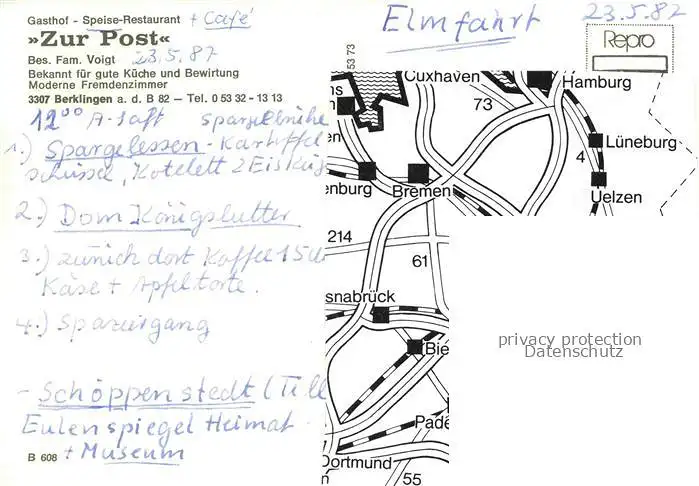 Gasthof - Speise-Restaurant + Café
»Zur Post«
Bes. Fam. Voigt 23.5.87
Bekannt für gute Küche und Bewirtung
Moderne Fremdenzimmer
3307 Berklingen a. d. B 82 — Tel. 0 53 32 - 13 13
12°° A-saft
1.) Spargelessen - Kartoffel
schüssel, Kotelett 2 Eiskug
2.) Dom Königslutter
3.) zurück dort Kaffee 15 U
Käse + Apfeltorte.
4.) Spaziergang
- Schöppenstedt (Till
Eulenspiegel Heimat
+ Museum
B 608
Elmfahrt 23.5.87
Repro
53 73
Cuxhaven
Hamburg
73
Lüneburg
4
Uelzen
enburg
Bremen
214
61
snabrück
Bie
Pade
Dortmund
55
privacy protection
Datenschutz